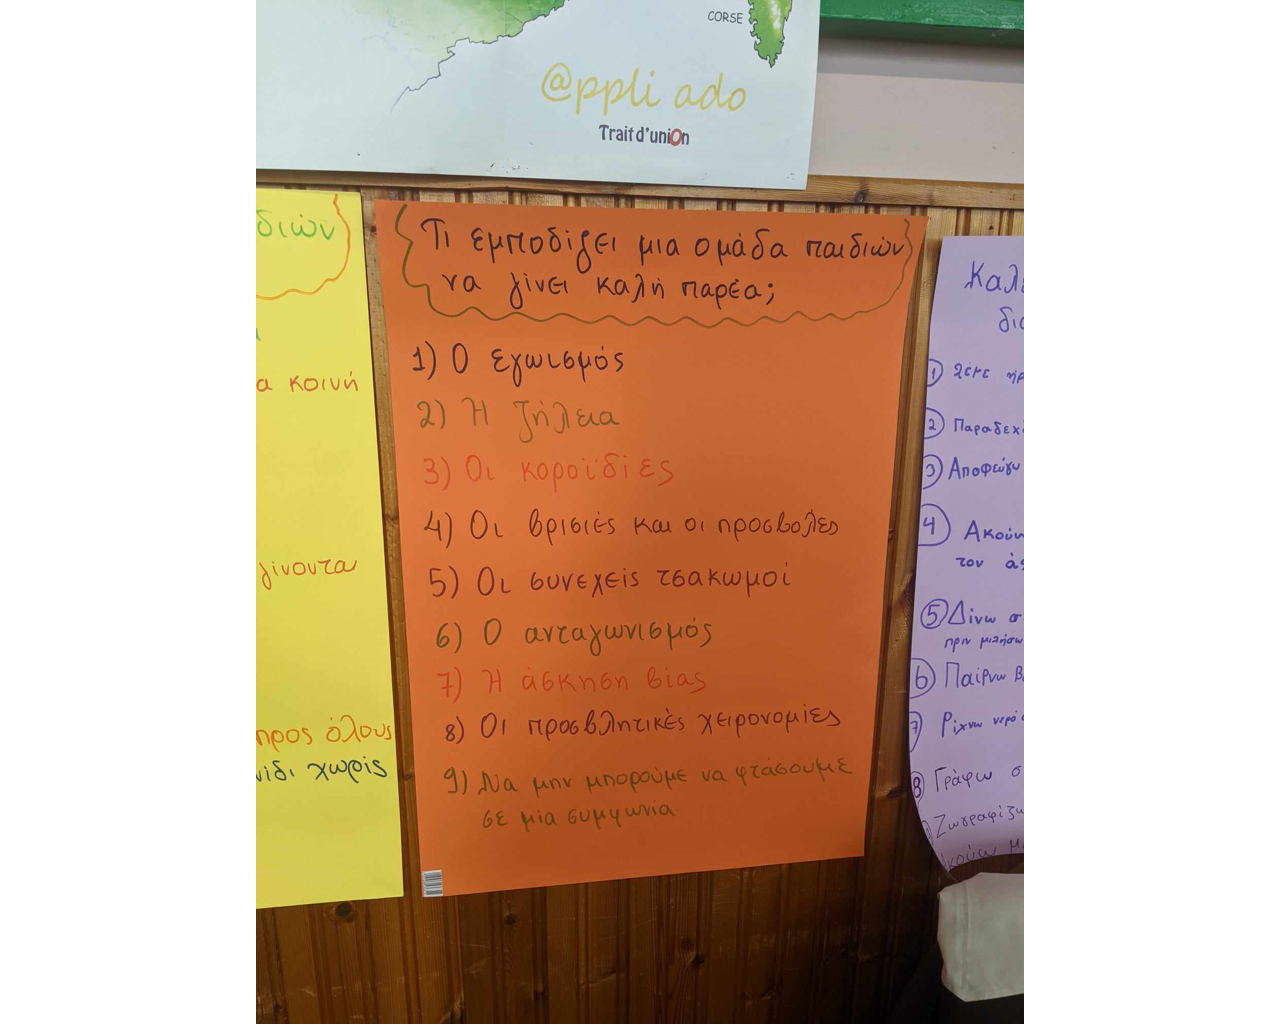 CORSE
@ppli ado
Trait d'union
διών
α κοινή
γίνονται
προς όλους
νίδι χωρίς
Τι εμποδίζει μια ομάδα παιδιών
να γίνει καλή παρέα;
1) Ο εγωισμός
2) Η ζήλεια
3) Οι κοροϊδίες
4) Οι βρισιές και οι προσβολές
5) Οι συνεχείς τσακωμοί
6) Ο ανταγωνισμός
7) Η άσκηση βίας
8) Οι προσβλητικές χειρονομίες
9) Να μην μπορούμε να φτάσουμε
σε μία συμφωνία
Καλ
δια
1
2 Παραδεχ
3 Αποφεύγω
4 Ακούω
τον
5 Δίνω σ
πριν μιλήσω
6 Παίρνω β
7 Ρίχνω νερό
8 Γράφω σ
Ζωγραφίζω
Ακούω μ